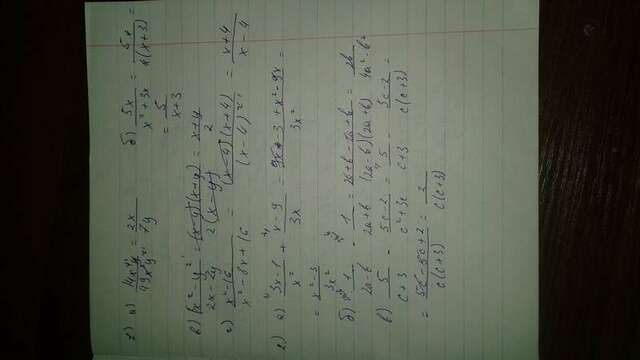 1) а) 14x⁴y / 49x³y² = 2x / 7y б) 5x / x² + 3x = 5x / x(x+3) =
= 5 / x+3
в) x² - y² / 2x - 2y = (x-y)(x+y) / 2(x-y) = x+y / 2
г) x² - 16 / x² - 8x + 16 = (x-4)(x+4) / (x-4)² = x+4 / x-4
2) а) 3x-1 / x² + x-9 / 3x = 9x - 3 + x² - 9x / 3x² =
= x² - 3 / 3x²
б) 1 / 2a-b - 1 / 2a+b = 2a+b-2a+b / (2a-b)(2a+b) = 2b / 4a² - b²
в) 5 / c+3 - 5c-2 / c² + 3c = 5 / c+3 - 5c-2 / c(c+3) =
= 5c - 5c + 2 / c(c+3) = 2 / c(c+3)